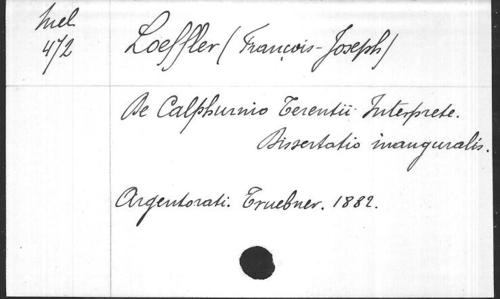 Mel
472
Loeffler (François-Joseph)
De Calphurnio Terentii Interprete.
Dissertatio inauguralis.
Argentorati. Truebner. 1882.